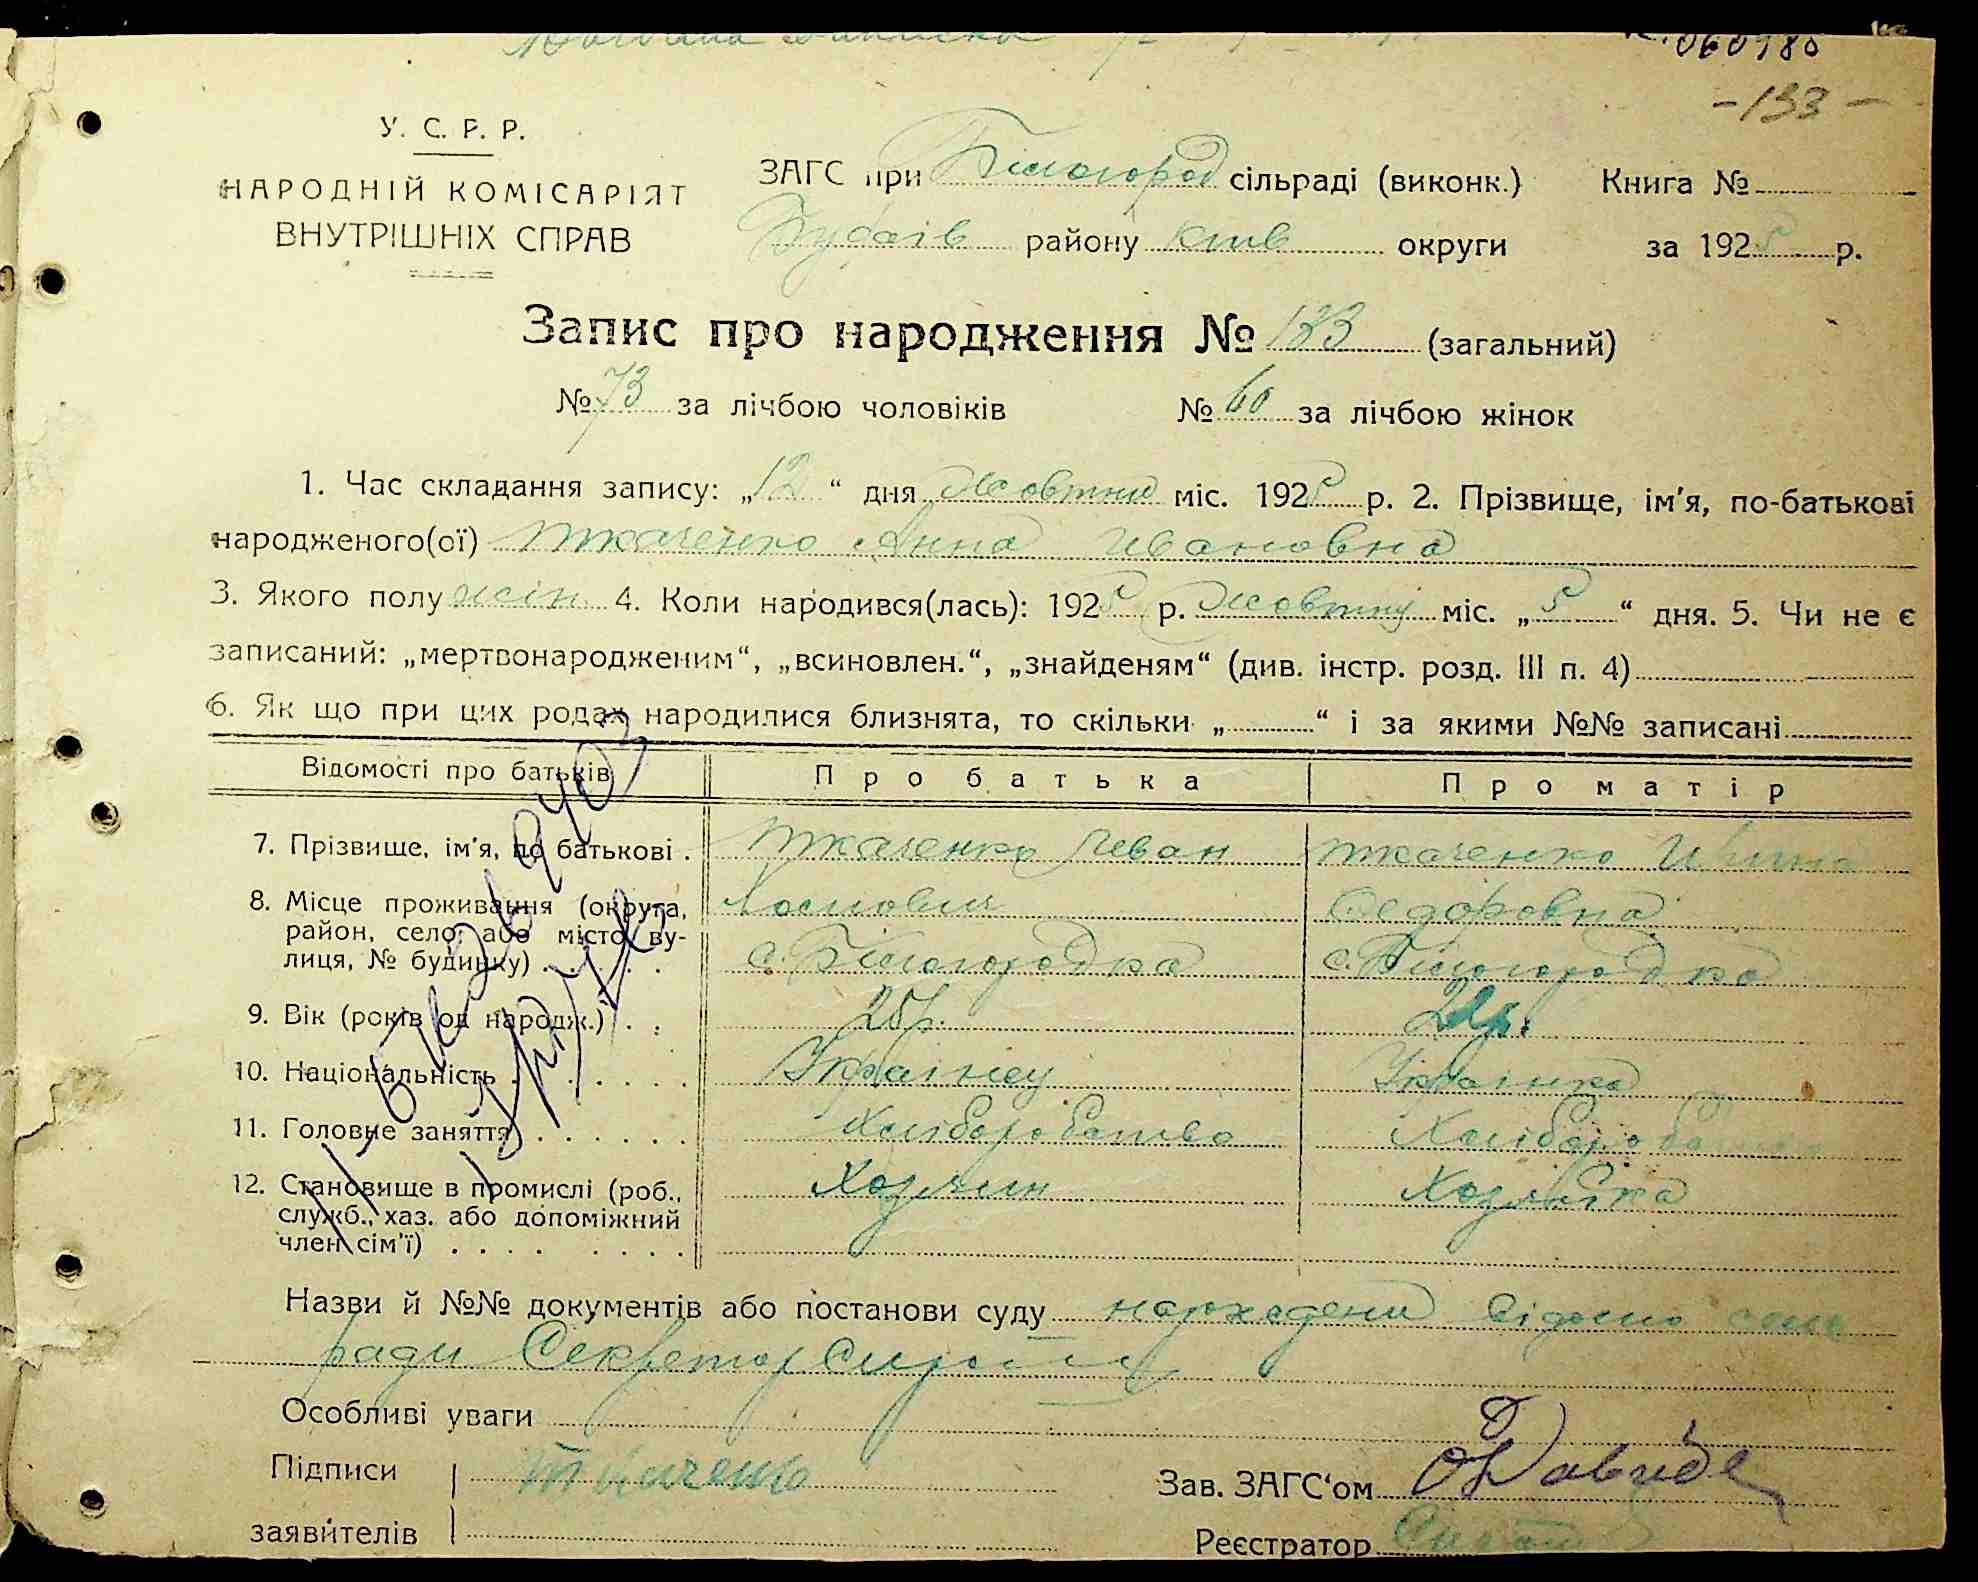 060980
-133-
У. С. Р. Р.
НАРОДНІЙ КОМІСАРІЯТ
ВНУТРІШНІХ СПРАВ
ЗАГС при Білогород сільраді (виконк.) Книга №
Будаїв району Київ округи за 1925 р.
Запис про народження № 133 (загальний)
№ 73 за лічбою чоловіків № 60 за лічбою жінок
1. Час складання запису: „12“ дня Жовтня міс. 1925 р. 2. Прізвище, ім'я, по-батькові
народженого(ої) Ткаченко Анна Ивановна
3. Якого полу жін 4. Коли народився(лась): 1925 р. Жовтня міс. „5“ дня. 5. Чи не є
записаний: „мертвонародженим“, „всиновлен.“, „знайденям“ (див. інстр. розд. III п. 4)
6. Як що при цих родах народилися близнята, то скільки „ “ і за якими №№ записані
Відомості про батьків Про батька Про матір
7. Прізвище, ім'я, по батькові . Ткаченко Иван Ткаченко
8. Місце проживання (округа, Федоровна
район, село або місто, ву-
лиця, № будинку) . . . . с. Білогородка с. Білогородка
9. Вік (років од народж.) . . 25р.
10. Національність . . . . . . . Українец Українка
11. Головне заняття . . . . . . Хліборобство
12. Становище в промислі (роб., Хозяин Хозяйка
служб., хаз. або допоміжний
член сім'ї) . . . . . . . . .
Назви й №№ документів або постанови суду
ради Секретар
Особливі уваги
Підписи Ткаченко Зав. ЗАГС'ом
заявителів Реєстратор